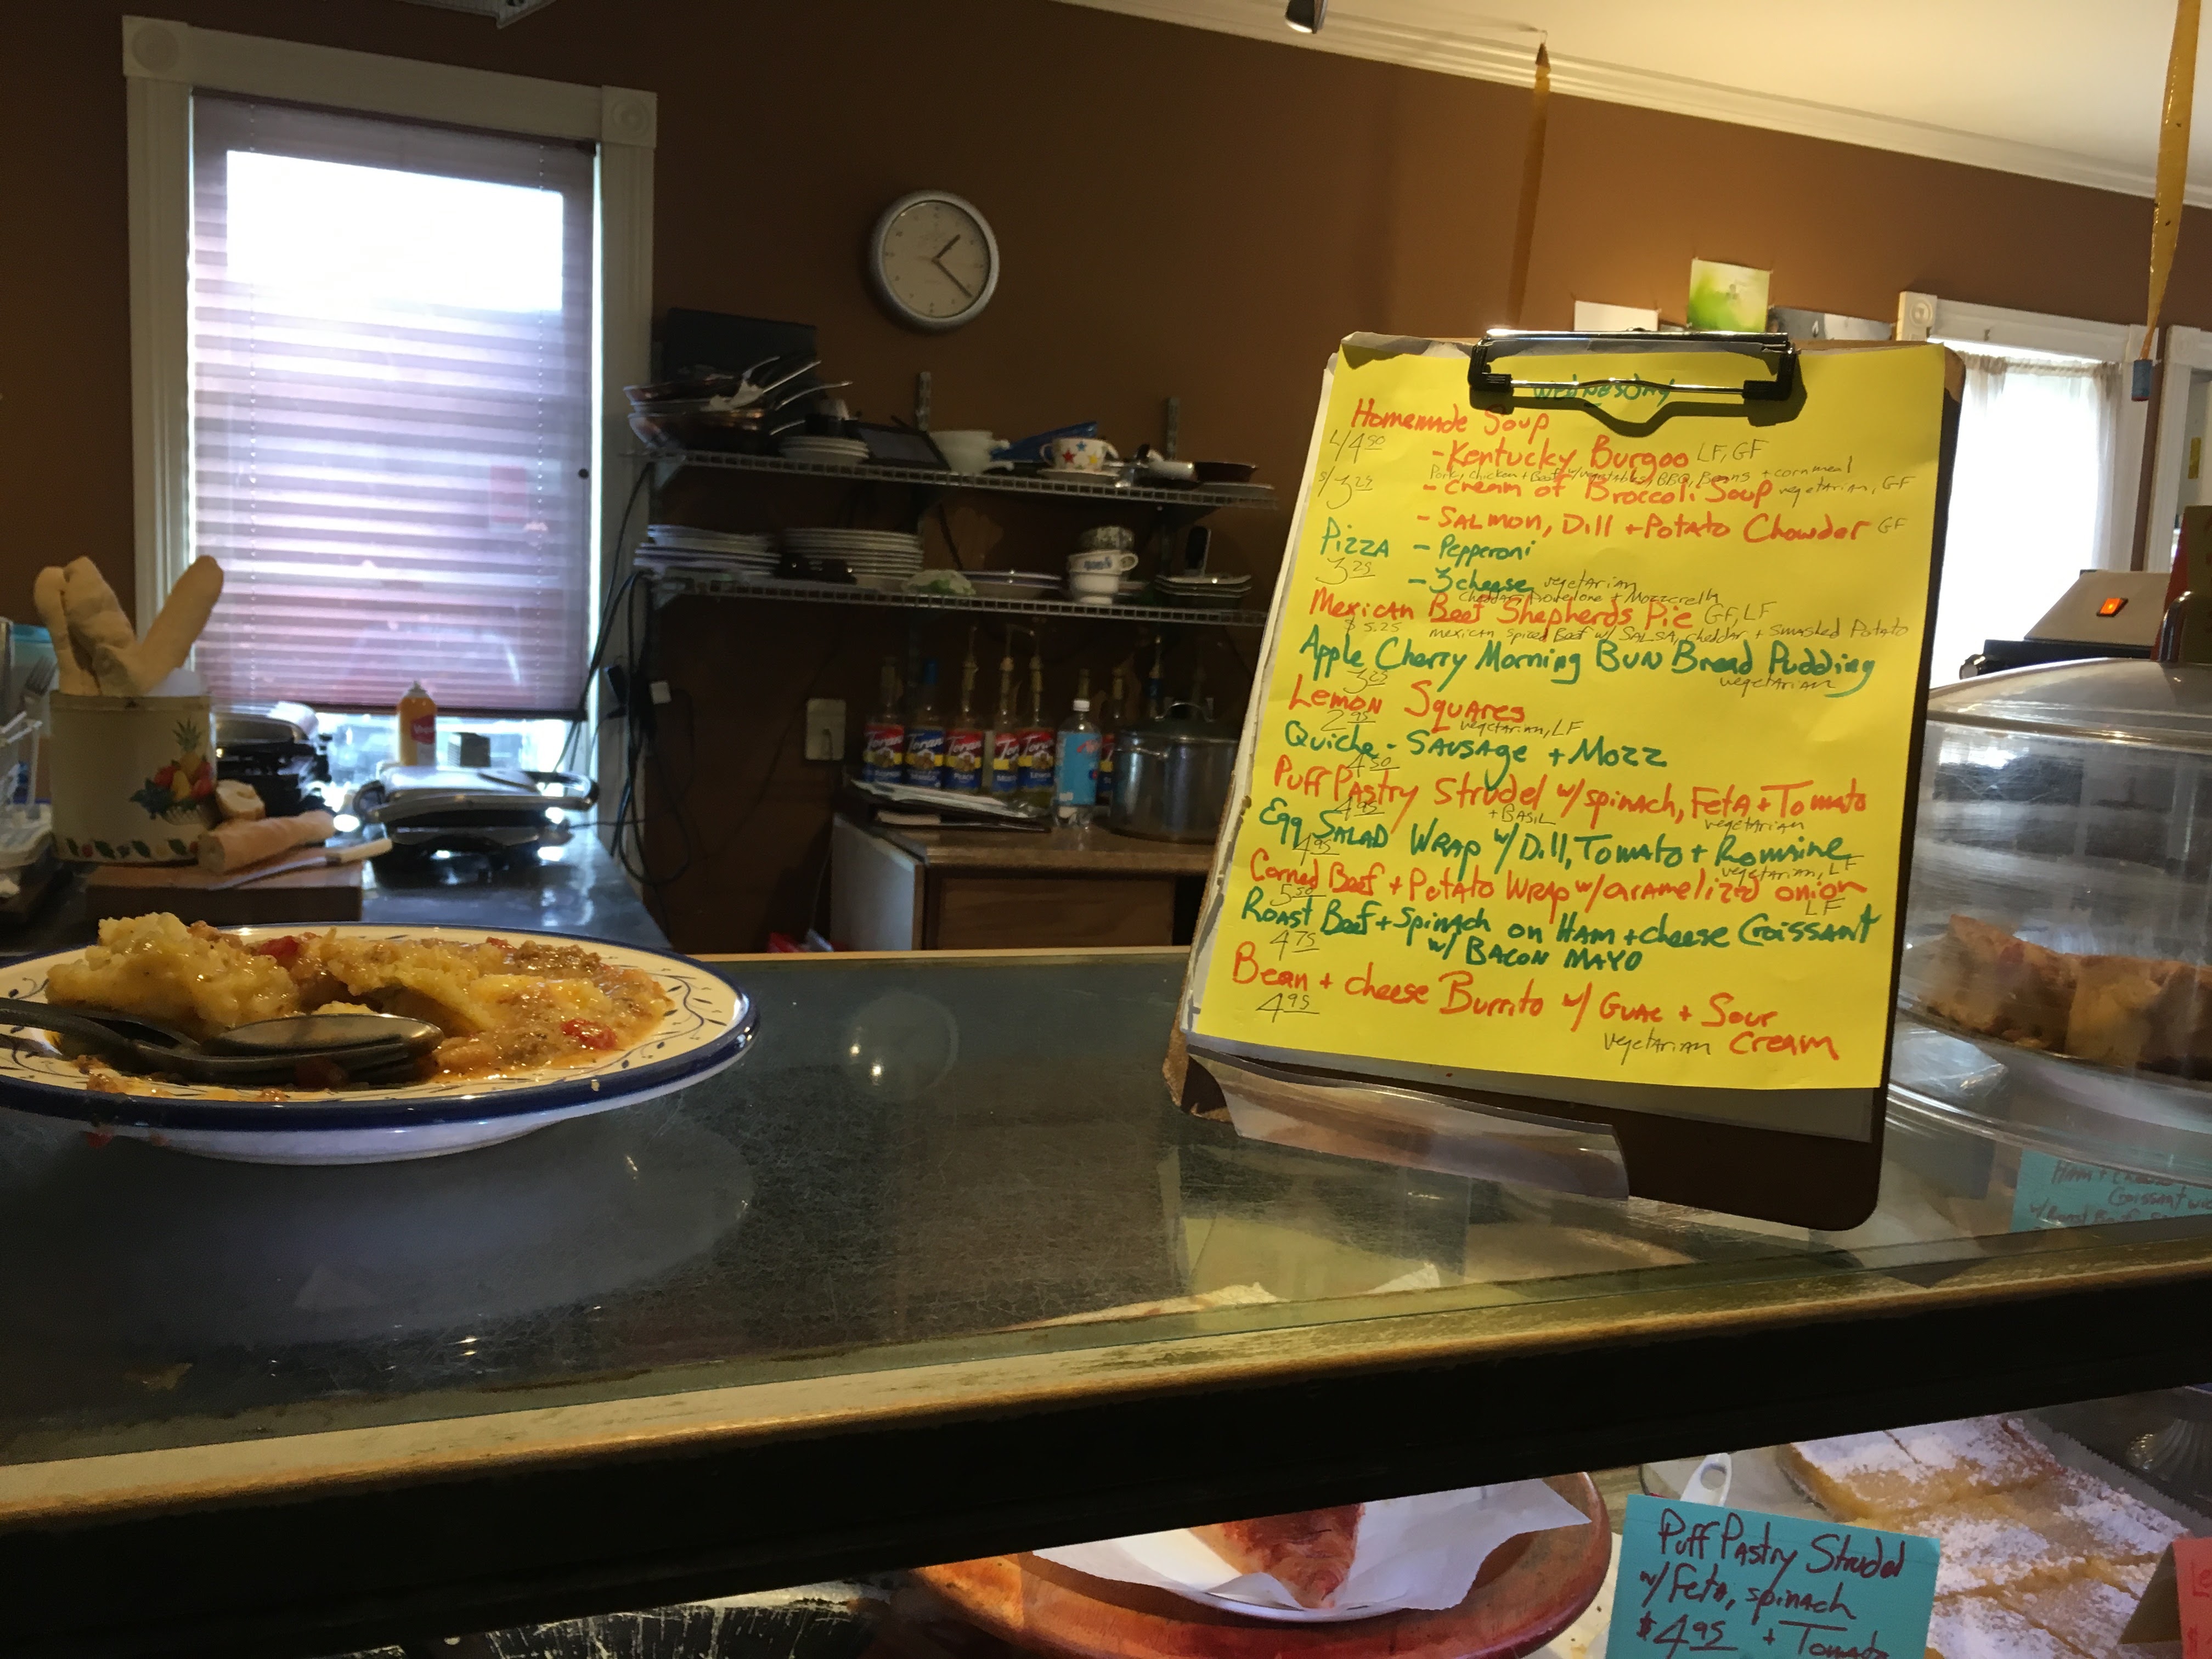 Wednesday
Homemade Soup
L/4.50 - Kentucky Burgoo LF, GF
Pork, chicken + Beef w/ vegetables, BBQ, Beans + cornmeal
S/3.25 - Cream of Broccoli Soup vegetarian, GF
- Salmon, Dill + Potato Chowder GF
Pizza - Pepperoni
3.25 - 3 cheese vegetarian
cheddar, provelone + Mozzerella
Mexican Beef Shepherds Pie GF, LF
$5.25 mexican spiced Beef w/ SALSA, cheddar + smashed Potato
Apple Cherry Morning Bun Bread Pudding
vegetarian
Lemon Squares
2.95 vegetarian, LF
Quiche - Sausage + Mozz
4.50
Puff Pastry Strudel w/ spinach, Feta + Tomato
4.95 + BASIL vegetarian
Egg Salad Wrap w/ Dill, Tomato + Romaine
4.95 vegetarian, LF
Corned Beef + Potato Wrap w/ caramelized onion
5.50 LF
Roast Beef + Spinach on Ham + cheese Croissant
4.75 w/ Bacon Mayo
Bean + cheese Burrito w/ Guac + Sour
4.95 vegetarian Cream
Torani Torani Torani
Ham + Cheese
Croissant
w/ Roast Beef
Puff Pastry Strudel
w/ Feta, spinach
$4.95 + Tomato